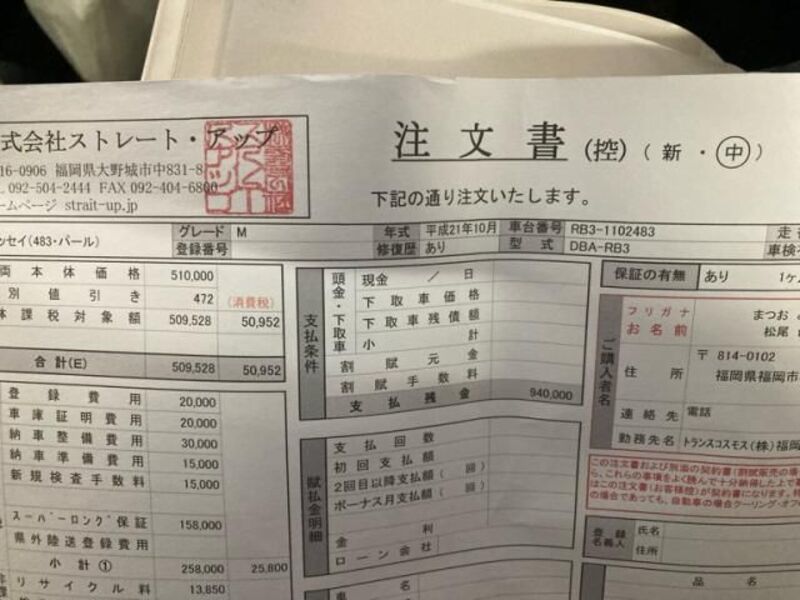 式会社ストレート・アップ
16-0906 福岡県大野城市中831-8
L 092-504-2444 FAX 092-404-6800
ームページ strait-up.jp
注文書(控)(新・中)
下記の通り注文いたします。
ッセイ(483・パール)
グレード M
登録番号
年式 平成21年10月
修復歴 あり
車台番号 RB3-1102483
型式 DBA-RB3
走
車検
両本体価格 510,000
別値引き 472 (消費税)
体課税対象額 509,528 50,952
合計(E) 509,528 50,952
登録費用 20,000
車庫証明費用 20,000
納車整備費用 30,000
納車準備費用 15,000
新規検査手数料 15,000
スーパーロング保証 158,000
県外陸送登録費用
小計① 258,000 25,800
リサイクル料 13,850
支払条件
頭金・下取車
現金 / 日
下取車価格
下取車残債額
小計
割賦元金
割賦手数料
支払残金 940,000
賦払金明細
支払回数
初回支払額
2回目以降支払額(回)
ボーナス月支払額(回)
金利
ローン会社
車名
保証の有無 あり 1ヶ
ご購入者名
フリガナ まつお
お名前 松尾
住所 〒814-0102
福岡県福岡市
連絡先 電話
勤務先名 トランスコスモス(株)福岡
この注文書および別添の契約書(割賦販売の場
ら、これらの事項をよく読んで十分納得した上で
はこの注文書(お客様控)が契約書になります。
の場合であっても、自動車の場合クーリング・オフ
登録名義人
氏名
住所
品名